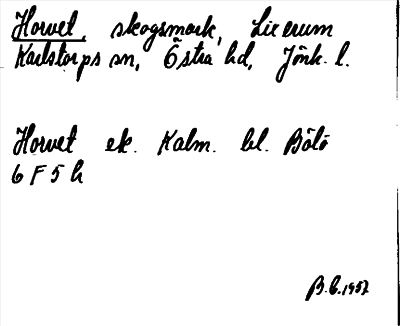 Horvet, skogsmark, Licerum
Karlstorps sn, Östra hd, Jönk. l.
Horvet ek. Kalm. bl. Bölö
6 F 5 h
B.E. 1957